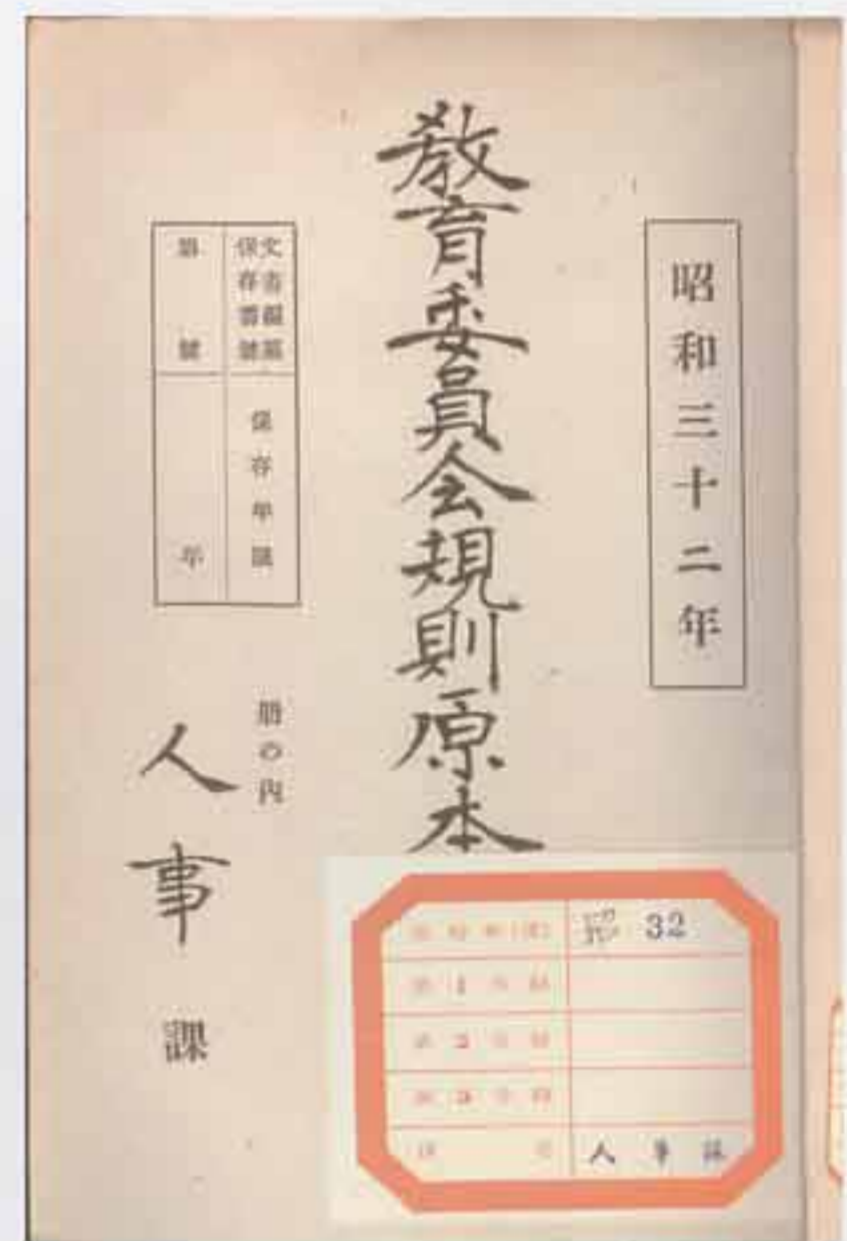 昭和三十二年
教育委員会規則原本
文書編纂
保存番號
第 號
保存年限
年
冊の内
人事課
32
第1
第2
第3
人事課